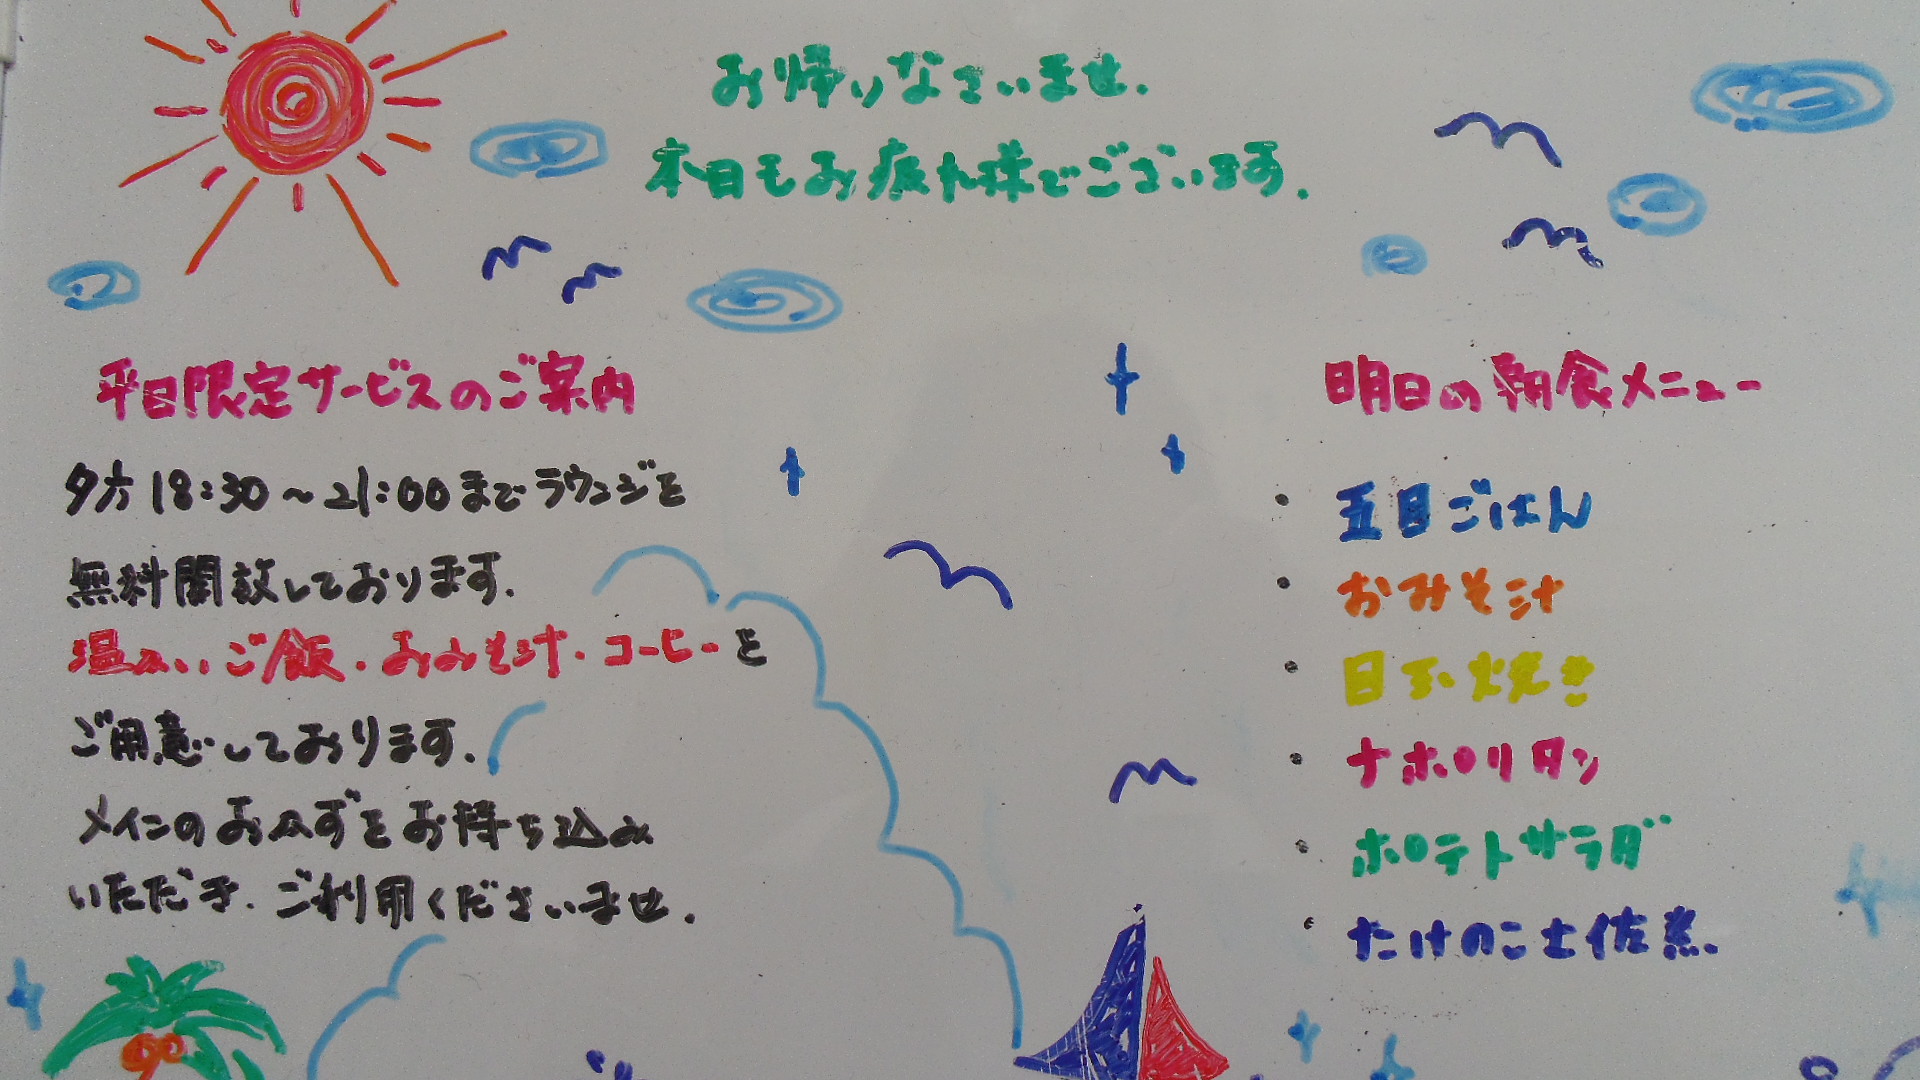 お帰りなさいませ.
本日もお疲れ様でございます.
平日限定サービスのご案内
夕方18:30～21:00までラウンジを
無料開放しております.
温かいご飯・おみそ汁・コーヒーを
ご用意しております.
メインのおかずをお持ち込み
いただき.ご利用くださいませ.
明日の朝食メニュー
・五目ごはん
・おみそ汁
・目玉焼き
・ナポリタン
・ポテトサラダ
・たけのこ土佐煮.